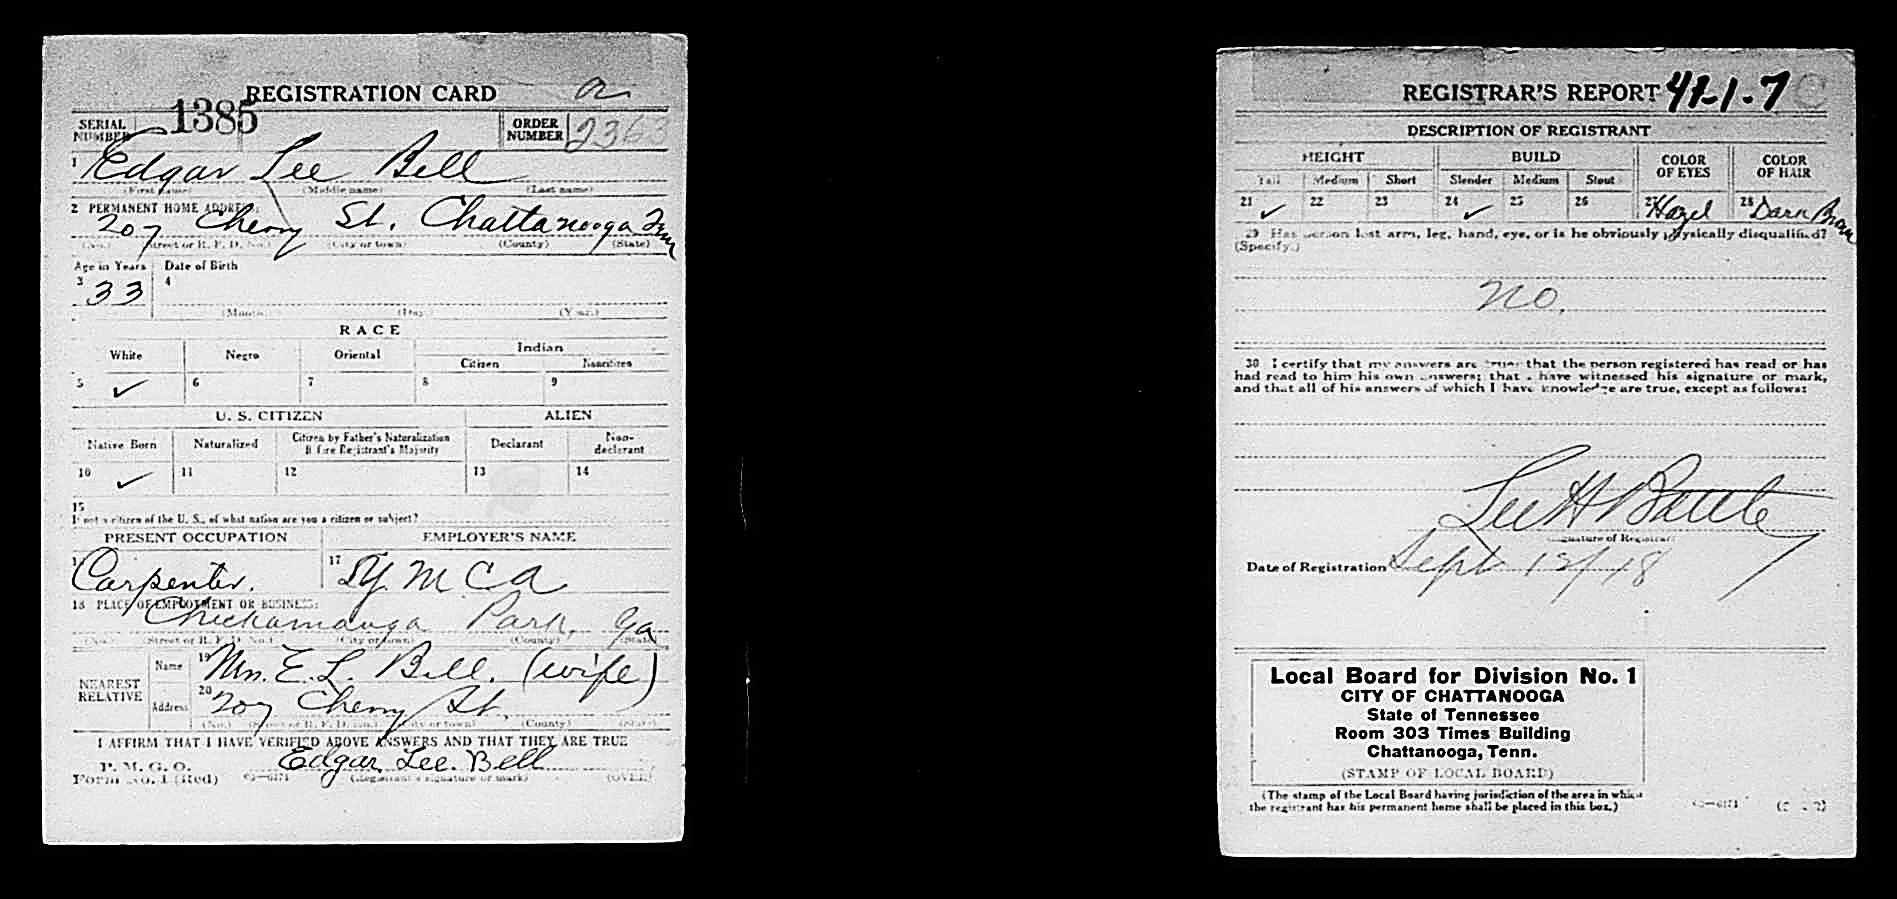 REGISTRATION CARD a
SERIAL NUMBER 1385 ORDER NUMBER 2363
1 Edgar Lee Bell
(First name) (Middle name) (Last name)
2 PERMANENT HOME ADDRESS:
207 Cherry St. Chattanooga Tenn
(No.) (Street or R. F. D. No.) (City or town) (County) (State)
Age in Years Date of Birth
3 33 4
(Month) (Day) (Year)
RACE
White Negro Oriental Indian
Citizen Noncitizen
5 ✓ 6 7 8 9
U. S. CITIZEN ALIEN
Native Born Naturalized Citizen by Father's Naturalization Before Registrant's Majority Declarant Non-declarant
10 ✓ 11 12 13 14
15
If not a citizen of the U. S., of what nation are you a citizen or subject?
PRESENT OCCUPATION EMPLOYER'S NAME
Carpenter. 17 Y M C A
18 PLACE OF EMPLOYMENT OR BUSINESS:
Chickamauga Park, Ga
(No.) (Street or R. F. D. No.) (City or town) (County) (State)
NEAREST RELATIVE
Name 19 Mrs. E. L. Bell. (wife)
Address 20 207 Cherry St.
(No.) (Street or R. F. D. No.) (City or town) (County) (State)
I AFFIRM THAT I HAVE VERIFIED ABOVE ANSWERS AND THAT THEY ARE TRUE
P. M. G. O.
Form No. 1 (Red) Edgar Lee. Bell
(Registrant's signature or mark) (OVER)
REGISTRAR'S REPORT 41-1-7 C
DESCRIPTION OF REGISTRANT
HEIGHT BUILD COLOR OF EYES COLOR OF HAIR
Tall Medium Short Slender Medium Stout
21 ✓ 22 23 24 ✓ 25 26 27 Hazel 28 Dark Brown
29 Has person lost arm, leg, hand, eye, or is he obviously physically disqualified?
(Specify.)
No.
30 I certify that my answers are true; that the person registered has read or has
had read to him his own answers; that I have witnessed his signature or mark,
and that all of his answers of which I have knowledge are true, except as follows:
Lee H Battle
(Signature of Registrar)
Date of Registration Sept 12/18
Local Board for Division No. 1
CITY OF CHATTANOOGA
State of Tennessee
Room 303 Times Building
Chattanooga, Tenn.
(STAMP OF LOCAL BOARD)
(The stamp of the Local Board having jurisdiction of the area in which
the registrant has his permanent home shall be placed in this box.)